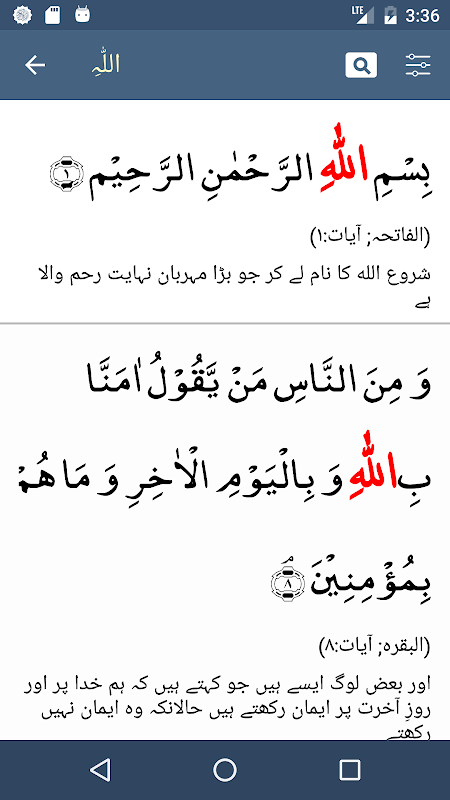 LTE 3:36
اللّٰهِ
بِسْمِ اللّٰهِ الرَّحْمٰنِ الرَّحِيْمِ ١
(الفاتحہ; آیات:۱)
شروع الله کا نام لے کر جو بڑا مہربان نہایت رحم والا
ہے
وَ مِنَ النَّاسِ مَنْ يَّقُوْلُ اٰمَنَّا
بِاللّٰهِ وَ بِالْيَوْمِ الْاٰخِرِ وَ مَا هُمْ
بِمُؤْمِنِيْنَۘ ٨
(البقرہ; آیات:۸)
اور بعض لوگ ایسے ہیں جو کہتے ہیں کہ ہم خدا پر اور
روزِ آخرت پر ایمان رکھتے ہیں حالانکہ وہ ایمان نہیں
رکھتے